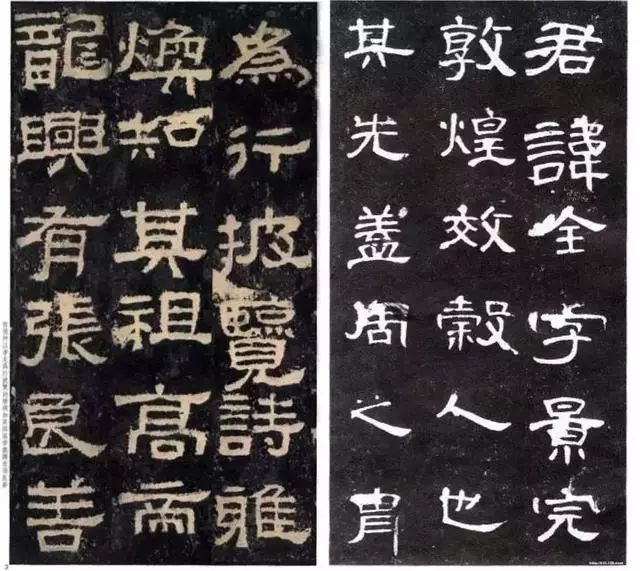 君諱全字景完
敦煌效穀人也
其先蓋周之胄
為行披覽詩雅
煥知其祖高帝
龍興有張良善
3